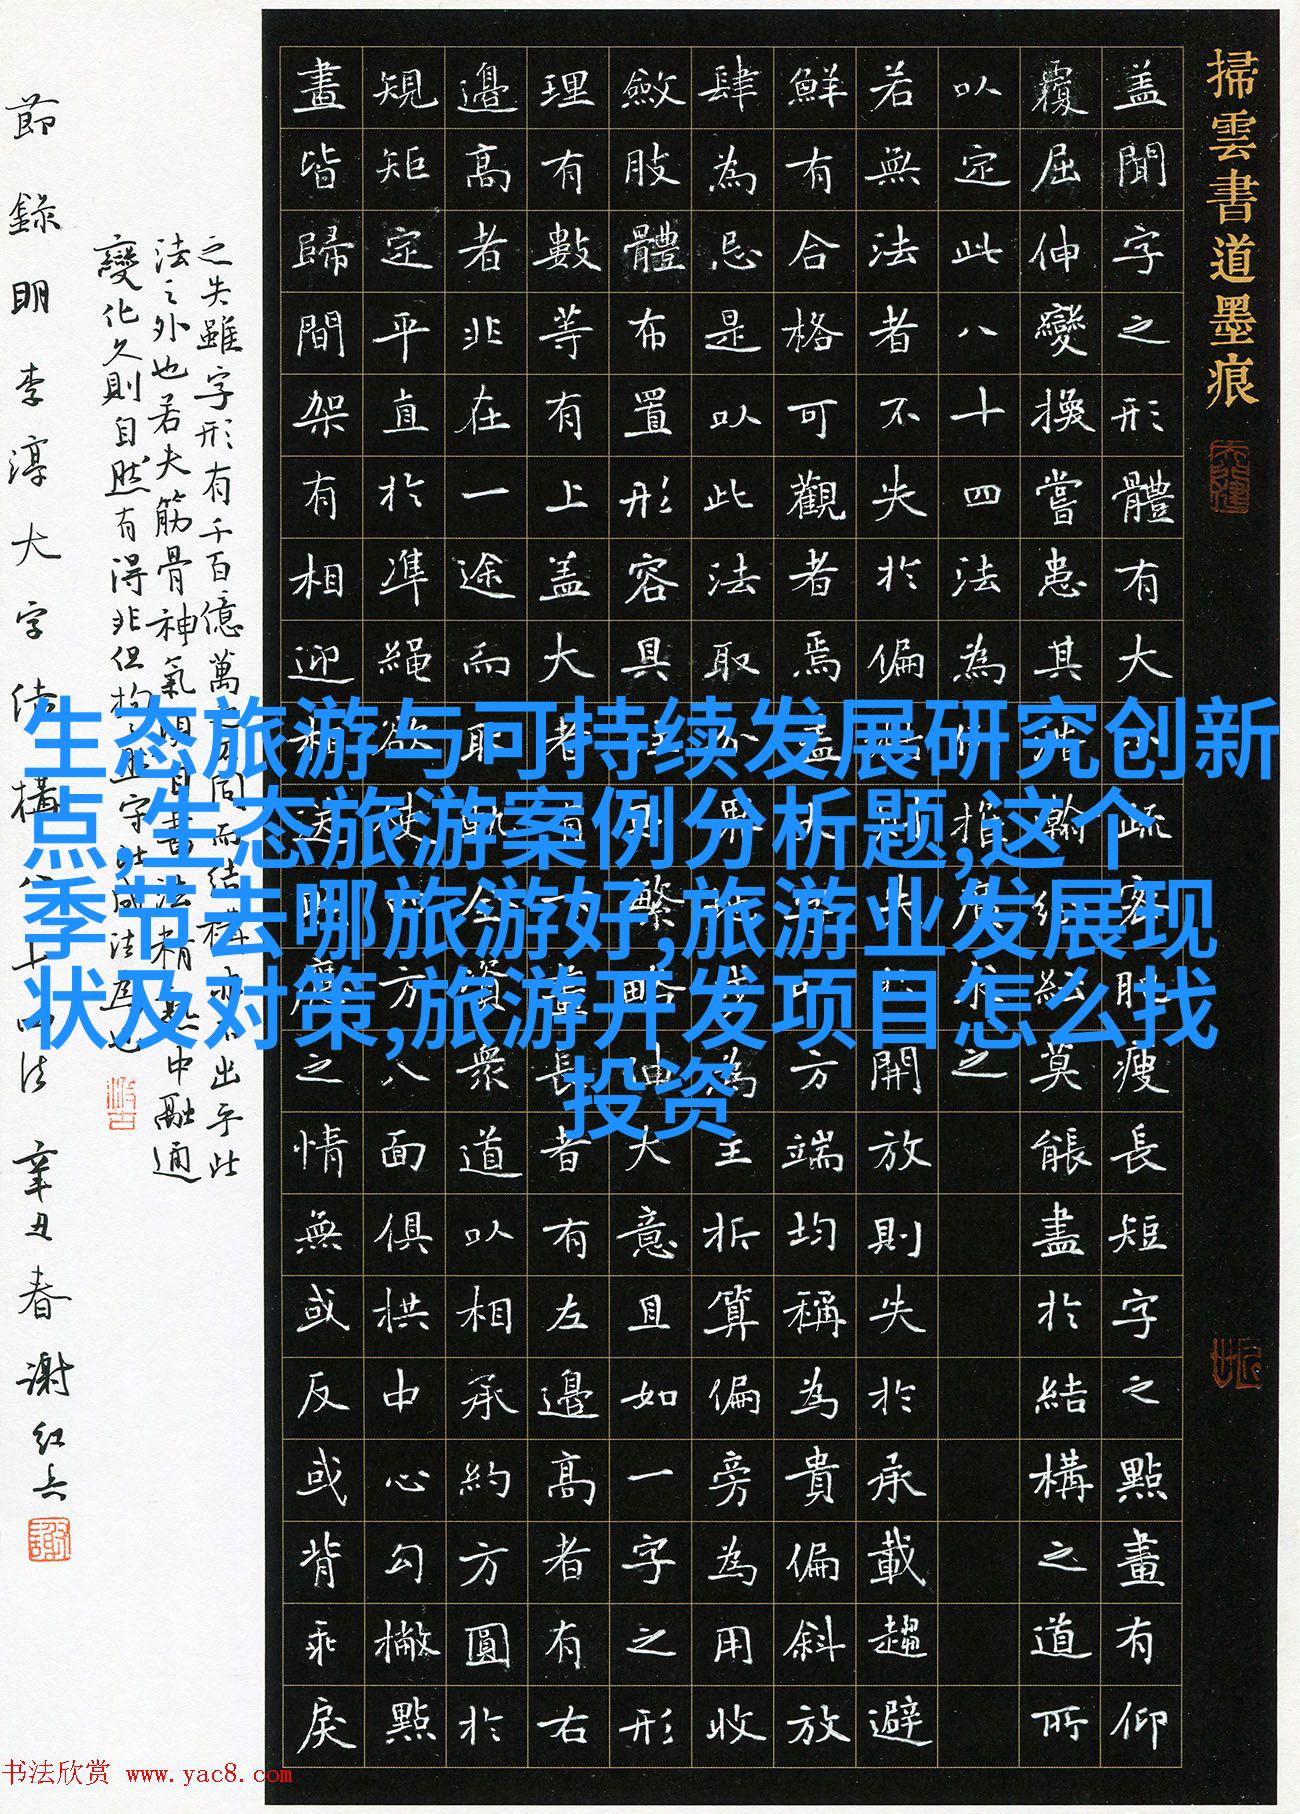 掃雲書道墨痕
蓋聞字之形體有大
疏
瘦長短字之點畫有仰
覆屈伸變換嘗患其
莫能盡於結構之道所
以定此八十四法為
之
若無法者不失於偏
開放則失於承載趨避
鮮有合格可觀者焉
方端均稱為貴偏斜放
肆為忌是以此法取
為主折算偏旁為用收
斂肢體布置形容具
大意且如一字之形
理有數等有上蓋大
長者有左邊高者有右
邊高者非在一途而
眾道以相承約方圓於
規矩定平直於準繩
八面俱拱中心勾撇點
畫皆歸間架有相迎
之情無或反或背乖戾
之失雖字形有千百億萬
出乎此
法之外也若夫筋骨神氣
中融通
變化久則自然有得非但拘
節錄明李淳大字結構八十四法 辛丑春 謝紅兵
生态旅游与可持续发展研究创新
点,生态旅游案例分析题,这个
季节去哪旅游好,旅游业发展现
状及对策,旅游开发项目怎么找
投资
书法欣赏 www.yac8.com